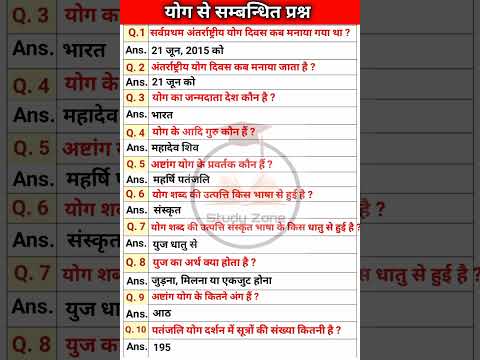 योग से सम्बन्धित प्रश्न
Q.1 सर्वप्रथम अंतर्राष्ट्रीय योग दिवस कब मनाया गया था ?
Ans. 21 जून, 2015 को
Q. 2 अंतर्राष्ट्रीय योग दिवस कब मनाया जाता है ?
Ans. 21 जून को
Q. 3 योग का जन्मदाता देश कौन है ?
Ans. भारत
Q. 4 योग के आदि गुरु कौन हैं ?
Ans. महादेव शिव
Q. 5 अष्टांग योग के प्रवर्तक कौन हैं ?
Ans. महर्षि पतंजलि
Q. 6 योग शब्द की उत्पत्ति किस भाषा से हुई है ?
Ans. संस्कृत
Q. 7 योग शब्द की उत्पत्ति संस्कृत भाषा के किस धातु से हुई है ?
Ans. युज धातु से
Q. 8 युज का अर्थ क्या होता है ?
Ans. जुड़ना, मिलना या एकजुट होना
Q. 9 अष्टांग योग के कितने अंग हैं ?
Ans. आठ
Q. 10 पतंजलि योग दर्शन में सूत्रों की संख्या कितनी है ?
Ans. 195
Study Zone
Ans.
भारत
Q. 3
योग
Ans.
महादेव
Q. 5
अष्टांग
Ans.
महर्षि
Q. 6
योग
हुई है ?
Ans.
संस्कृत
Q. 7
योग
धातु से हुई है ?
Ans.
युज धातु
Q. 8